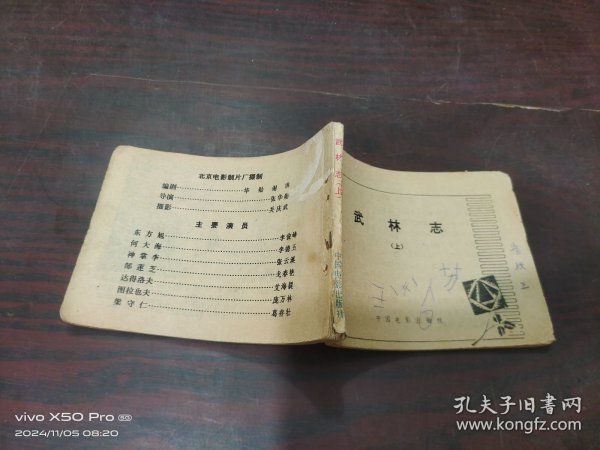 北京电影制片厂摄制
编剧 华勋 谢洪
导演 张华勋
摄影 吴庆武
主要演员
东方旭 李俊峰
何大海 李德玉
神掌李 张云溪
郜莲芝 戈春艳
达得洛夫 艾海提
图拉也夫 庞万林
梁守仁 葛存壮
武林志（上）
中国电影出版社
武林志
（上）
中国电影出版社
vivo X50 Pro 5G
2024/11/05 08:20
孔夫子旧书网
www.kongfz.com